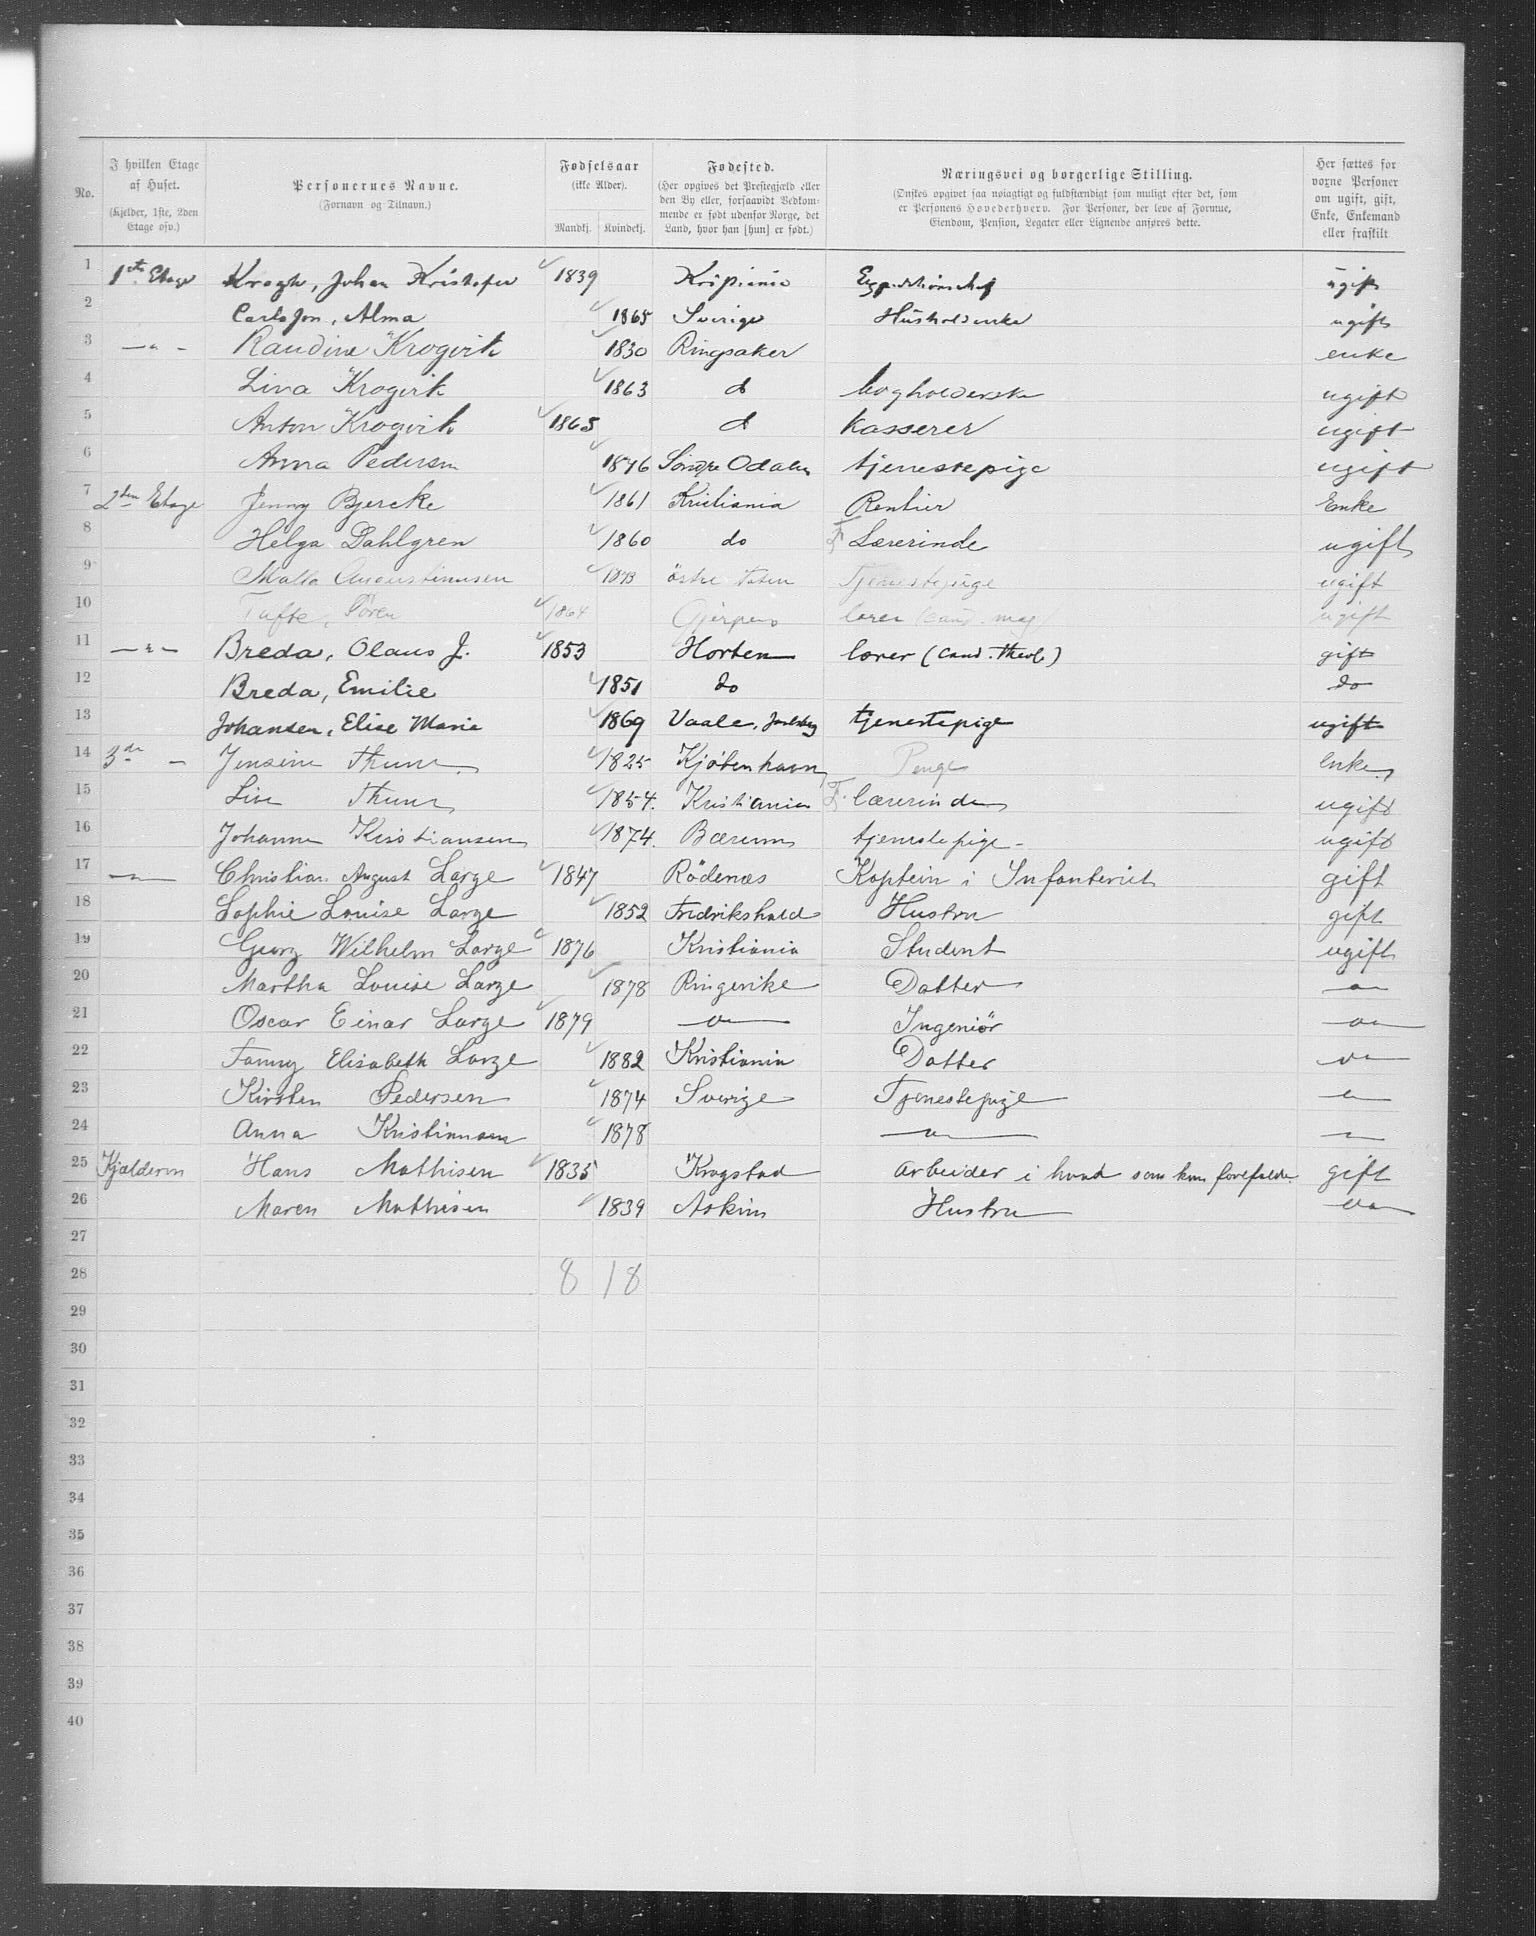 No. | I hvilken Etage af Huset. (Kjelder, 1ste, 2den Etage osv.) | Personernes Navne. (Fornavn og Tilnavn.) | Fødselsaar (ikke Alder). Mandkj. Kvindekj. | Fødested. (Her opgives det Prestegjæld eller den By eller, forsaavidt Vedkommende er født udenfor Norge, det Land, hvor han [hun] er født.) | Næringsvei og borgerlige Stilling. (Ønskes opgivet saa nøiagtigt og fuldstændigt som muligt efter det, som er Personens Hovederhverv. For Personer, der leve af Formue, Eiendom, Pension, Legater eller Lignende anføres dette. | Her sættes for voxne Personer om ugift, gift, Enke, Enkemand eller fraskilt
1 1ste Etage Krogh, Johan Kristofer 1839 Kristiania Expeditionschef ugift
2 Carlsson, Alma 1865 Sverige Husholderske ugift
3 — " — Randine Krogvik 1830 Ringsaker enke
4 Lina Krogvik 1863 d bogholderske ugift
5 Anton Krogvik 1865 d Kasserer ugift
6 Anna Pedersen 1876 Söndre Odalen tjenestepige ugift
7 2den Etage Jenny Bjercke 1861 Kristiania Rentier Enke
8 Helga Dahlgren 1860 do F Lærerinde ugift
9 Augustinusen 1873 östre Toten Tjenestepige ugift
10 Tufte, Sören 1864 Gjerpen lærer (cand. mag) ugift
11 — " — Breda, Olaus J. 1853 Horten lærer (cand. theol.) gift
12 Breda, Emilie 1851 do do
13 Johansen, Elise Marie 1869 Vaale, Jarlsberg tjenestepige ugift
14 3de — Jensine Thune 1825 Kjøbenhavn Penge Enke
15 Lise Thune 1854. Kristiania F. lærerinde ugift
16 Johanne Kristiansen 1874. Bærum tjenestepige - ugift
17 — " — Christian August Lange 1847 Rödenæs Kaptein i Infanteriet gift
18 Sophie Louise Lange 1852 Fredrikshald Hustru gift
19 Georg Wilhelm Lange 1876 Kristiania Student ugift
20 Martha Louise Lange 1878 Ringerike Datter — " —
21 Oscar Einar Lange 1879 — " — Ingeniör — " —
22 Fanny Elisabeth Lange 1882 Kristiania Datter — " —
23 Kirsten Pedersen 1874 Sverige Tjenestepige — " —
24 Anna Kristiansen 1878 — " — — " —
25 Kjælderen Hans Mathisen 1835 Krogstad arbeider i hvad som kan forefalde gift
26 Maren Mathisen 1839 Askim Hustru — " —
27
28 8 18
29
30
31
32
33
34
35
36
37
38
39
40